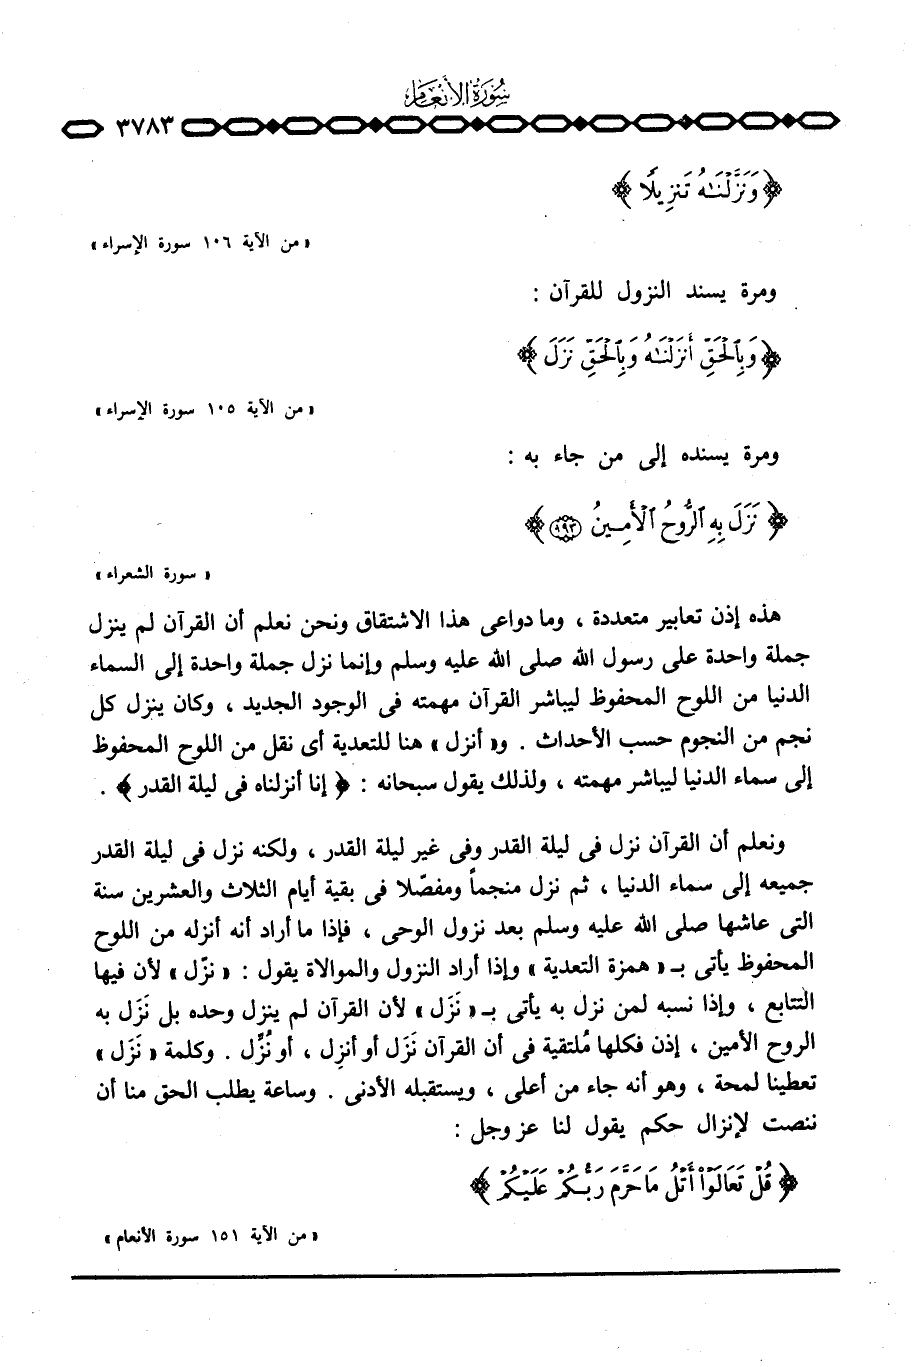 سُورَةُ الأَنعَام
٣٧٨٣
﴿ وَنَزَّلْنَـٰهُ تَنزِيلًا ﴾
« من الآية ١٠٦ سورة الإسراء »
ومرة يسند النزول للقرآن :
﴿ وَبِٱلْحَقِّ أَنزَلْنَـٰهُ وَبِٱلْحَقِّ نَزَلَ ﴾
« من الآية ١٠٥ سورة الإسراء »
ومرة يسنده إلى من جاء به :
﴿ نَزَلَ بِهِ ٱلرُّوحُ ٱلْأَمِينُ ١٩٣ ﴾
« سورة الشعراء »
هذه إذن تعابير متعددة ، وما دواعى هذا الاشتقاق ونحن نعلم أن القرآن لم ينزل
جملة واحدة على رسول الله صلى الله عليه وسلم وإنما نزل جملة واحدة إلى السماء
الدنيا من اللوح المحفوظ ليباشر القرآن مهمته فى الوجود الجديد ، وكان ينزل كل
نجم من النجوم حسب الأحداث . و« أنزل » هنا للتعدية أى نقل من اللوح المحفوظ
إلى سماء الدنيا ليباشر مهمته ، ولذلك يقول سبحانه : ﴿ إنا أنزلناه فى ليلة القدر ﴾ .
ونعلم أن القرآن نزل فى ليلة القدر وفى غير ليلة القدر ، ولكنه نزل فى ليلة القدر
جميعه إلى سماء الدنيا ، ثم نزل منجماً ومفصّلا فى بقية أيام الثلاث والعشرين سنة
التى عاشها صلى الله عليه وسلم بعد نزول الوحى ، فإذا ما أراد أنه أنزله من اللوح
المحفوظ يأتى بـ « همزة التعدية » وإذا أراد النزول والموالاة يقول : « نزّل » لأن فيها
التتابع ، وإذا نسبه لمن نزل به يأتى بـ « نَزَل » لأن القرآن لم ينزل وحده بل نَزَل به
الروح الأمين ، إذن فكلها مُلتقية فى أن القرآن نَزَل أو أنزِل ، أو نُزِّل . وكلمة « نَزَل »
تعطينا لمحة ، وهو أنه جاء من أعلى ، ويستقبله الأدنى . وساعة يطلب الحق منا أن
ننصت لإنزال حكم يقول لنا عز وجل :
﴿ قُلْ تَعَالَوْا۟ أَتْلُ مَا حَرَّمَ رَبُّكُمْ عَلَيْكُمْ ﴾
« من الآية ١٥١ سورة الأنعام »